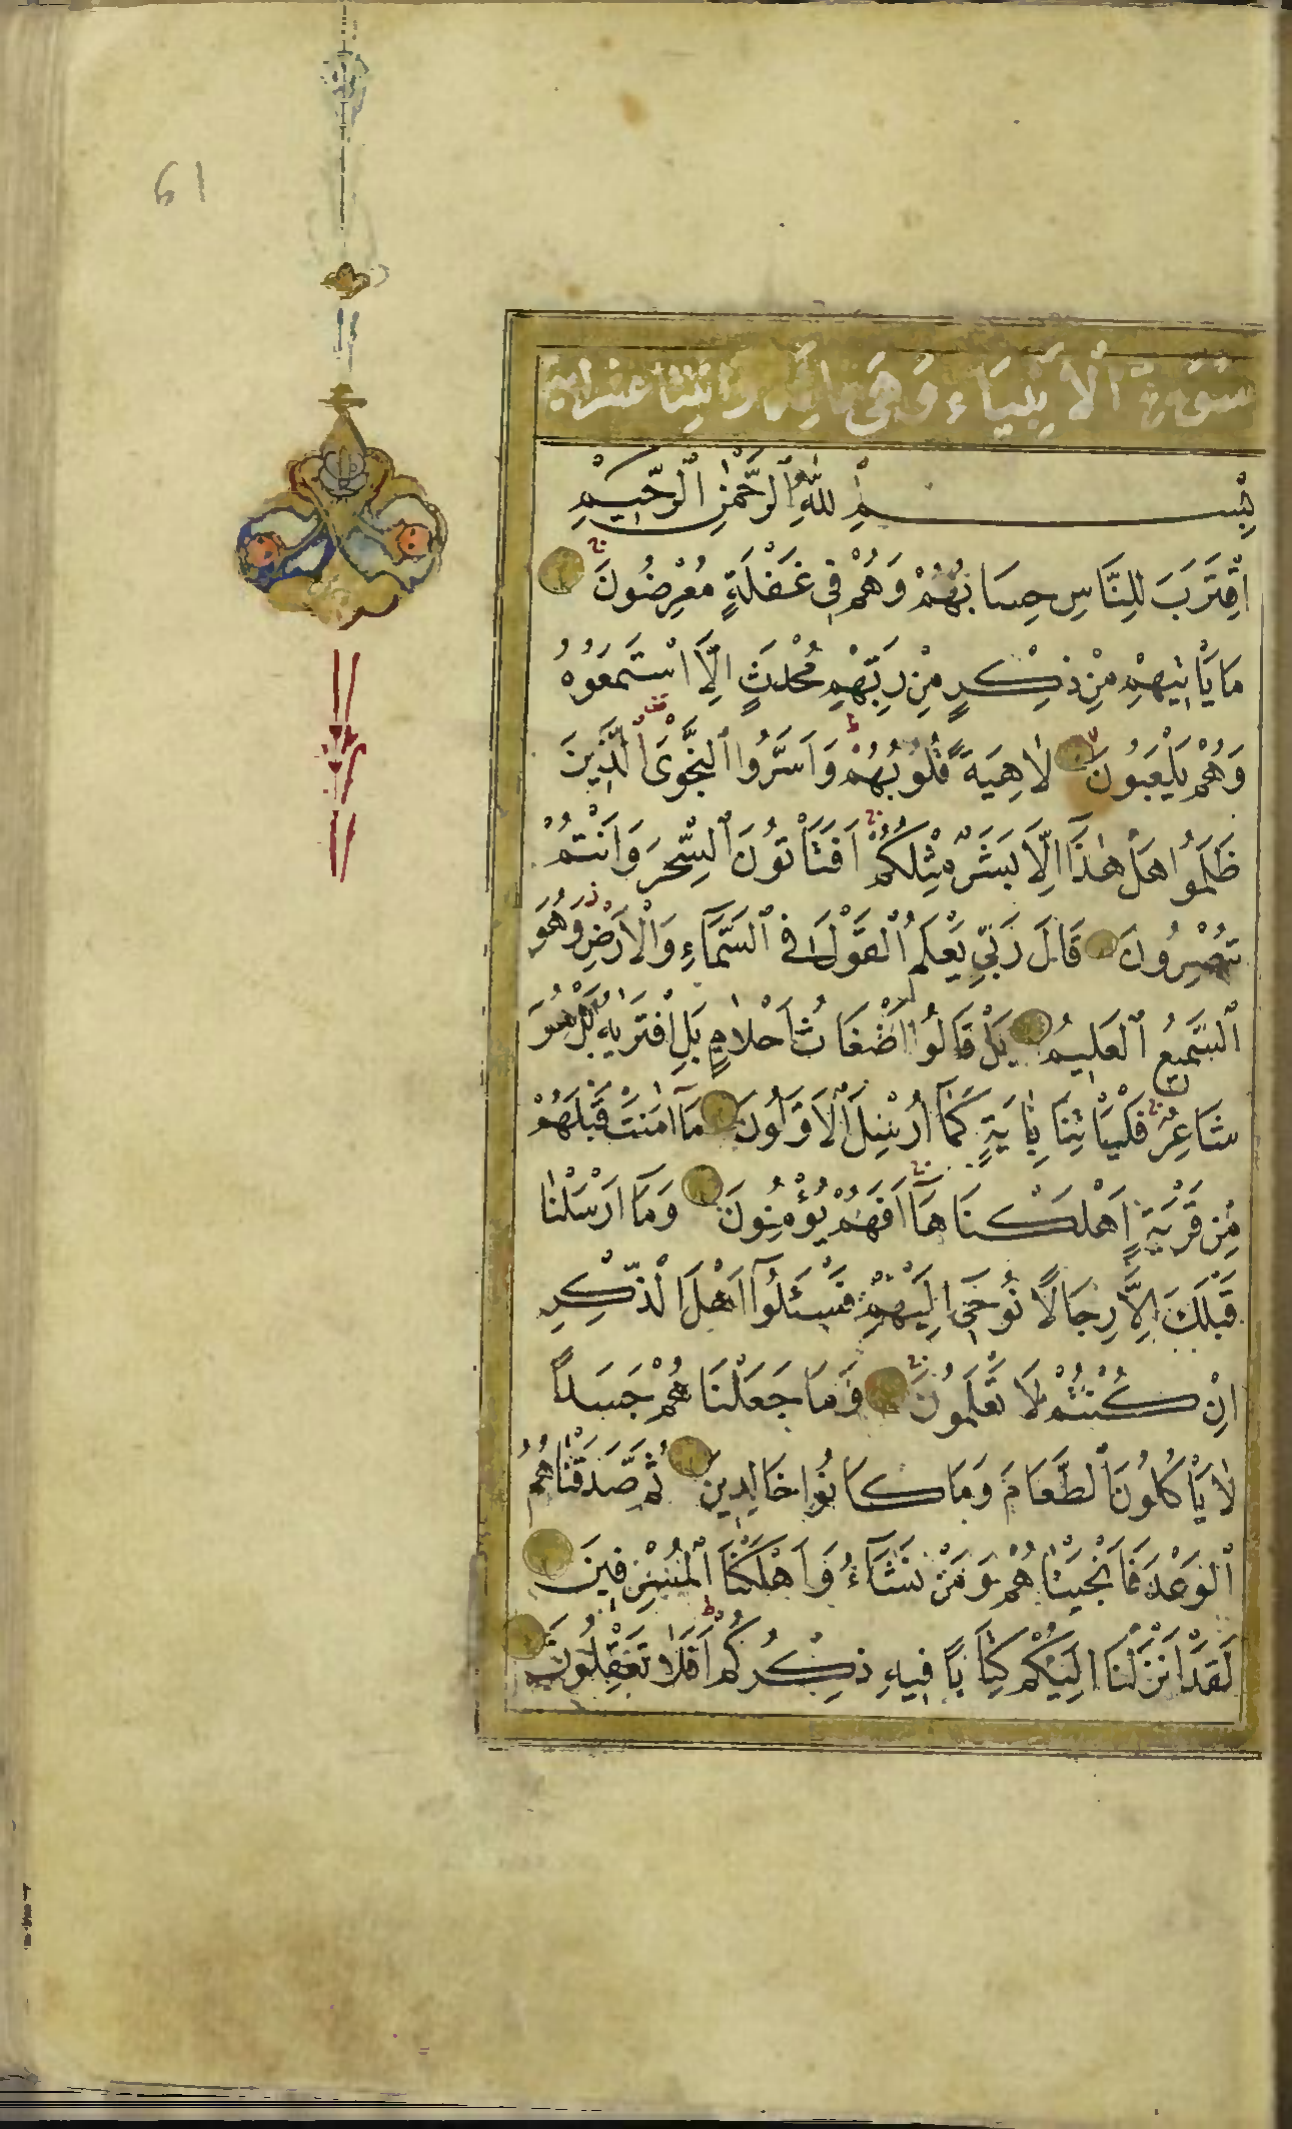 61
سورة الانبياء وهى مائة واثنتا عشراية
بِسْمِ اللّٰهِ الرَّحْمٰنِ الرَّحِيمِ
اِقْتَرَبَ لِلنَّاسِ حِسَابُهُمْ وَهُمْ فِى غَفْلَةٍ مُعْرِضُونَ
مَا يَاْتِيهِمْ مِنْ ذِكْرٍ مِنْ رَبِّهِمْ مُحْدَثٍ اِلَّا اسْتَمَعُوهُ
وَهُمْ يَلْعَبُونَ لَاهِيَةً قُلُوبُهُمْ وَاَسَرُّوا النَّجْوَى الَّذِينَ
ظَلَمُوا هَلْ هٰذَا اِلَّا بَشَرٌ مِثْلُكُمْ اَفَتَاْتُونَ السِّحْرَ وَاَنْتُمْ
تُبْصِرُونَ قَالَ رَبِّى يَعْلَمُ الْقَوْلَ فِى السَّمَآءِ وَالْاَرْضِ وَهُوَ
السَّمِيعُ الْعَلِيمُ بَلْ قَالُوا اَضْغَاثُ اَحْلَامٍ بَلِ افْتَرٰيهُ بَلْ هُوَ
شَاعِرٌ فَلْيَاْتِنَا بِاٰيَةٍ كَمَآ اُرْسِلَ الْاَوَّلُونَ مَآ اٰمَنَتْ قَبْلَهُمْ
مِنْ قَرْيَةٍ اَهْلَكْنَاهَآ اَفَهُمْ يُؤْمِنُونَ وَمَآ اَرْسَلْنَا
قَبْلَكَ اِلَّا رِجَالًا نُوحِىٓ اِلَيْهِمْ فَسْـَٔلُوٓا اَهْلَ الذِّكْرِ
اِنْ كُنْتُمْ لَا تَعْلَمُونَ وَمَا جَعَلْنَاهُمْ جَسَدًا
لَا يَاْكُلُونَ الطَّعَامَ وَمَا كَانُوا خَالِدِينَ ثُمَّ صَدَقْنَاهُمُ
الْوَعْدَ فَاَنْجَيْنَاهُمْ وَمَنْ نَشَآءُ وَاَهْلَكْنَا الْمُسْرِفِينَ
لَقَدْ اَنْزَلْنَا اِلَيْكُمْ كِتَابًا فِيهِ ذِكْرُكُمْ اَفَلَا تَعْقِلُونَ